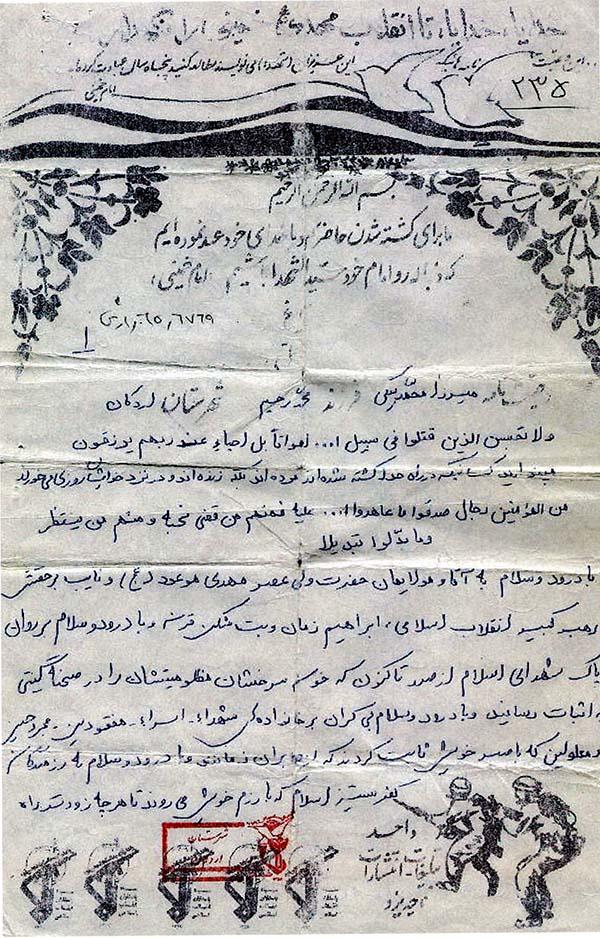 خدایا، خدایا، تا انقلاب مهدی خمینی را نگهدار
این وصیت نامه‌هائیکه این عزیزان می‌نویسند مطالعه کنید پنجاه سال عبادت کردید
امام خمینی
۲۳۵
بسم الله الرحمن الرحیم
ما برای کشته شدن حاضریم و با خدای خود عهد نموده ایم
که دنباله رو امام خود سید الشهدا باشیم (امام خمینی)
۱
وصیتنامه میرزا محمد بیگی فرزند محمد رحیم شهرستان اردکان
ولا تحسبن الذین قتلوا فی سبیل ا... امواتا بل احیاء عند ربهم یرزقون
مپندارید کسانیکه در راه خدا کشته شده‌اند مرده اند بلکه زنده اند و در نزد خدایشان روزی می خورند
من المؤمنین رجال صدقوا ما عاهدوا ا... علیه فمنهم من قضی نحبه و منهم من ینتظر
و ما بدلوا تبدیلا
با درود و سلام به آقا و مولایمان حضرت ولی عصر مهدی موعود (عج) و نایب برحقش
رهبر کبیر انقلاب اسلامی، ابراهیم زمان و بت شکن قرن و با درود و سلام بر روان
پاک شهدای اسلام از صدر تاکنون که خون سرخشان مظلومیتشان را در صحنه گیتی
به اثبات رساند و با درود و سلام بی کران بر خانواده‌ی شهداء، اسراء، مفقودین، مجروحین
و معلولین که با صبر خویش ثابت کردند که صابران زمانند و با درود و سلام به رزمندگان
کفر ستیز اسلام که با رزم خویش می روند تا هر چه زودتر راه
واحد
تبلیغات انتشارات
ناحیه یزد
شهرستان
اردکان